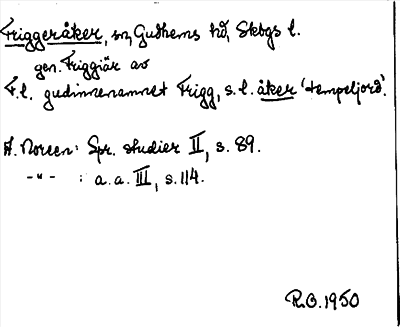 Friggeråker, sn, Gudhems hd, Skbgs l.
gen. Friggiär av
F.l. gudinnenamnet Frigg, s.l. åker 'tempeljord'.
A. Noreen: Spr. studier II, s. 89.
-"- : a.a. III, s. 114.
R.O. 1950